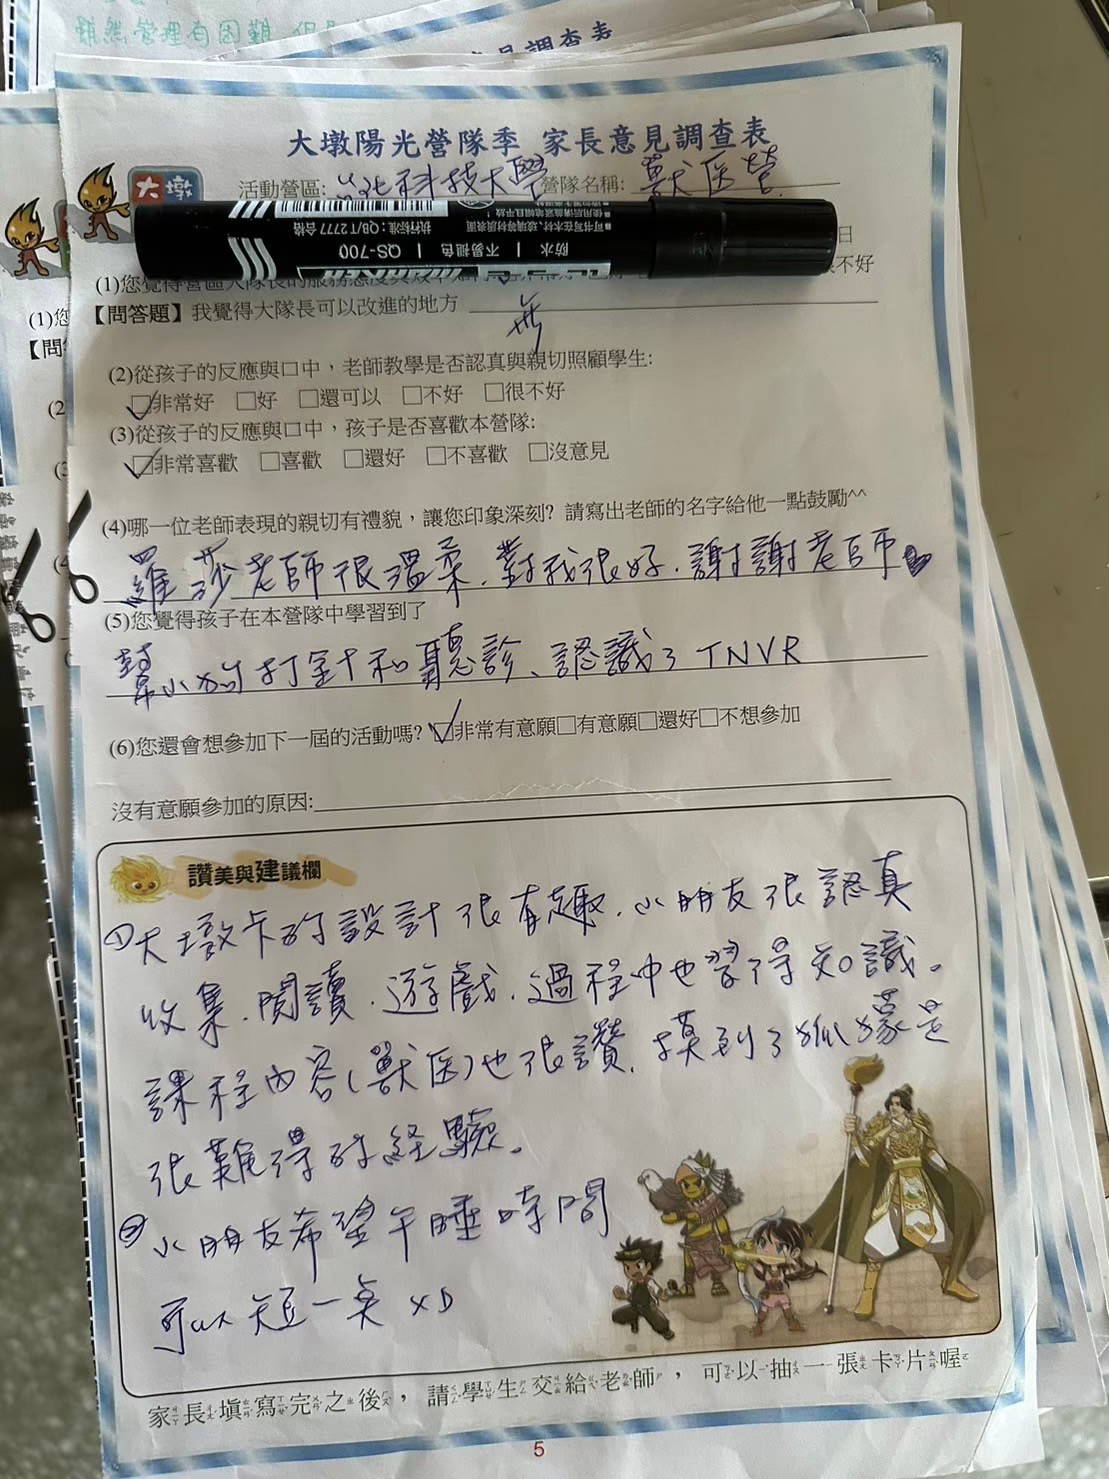 雖然管理有困難
見調查表
大墩陽光營隊季 家長意見調查表
大墩
活動營區: 台北科技大學 營隊名稱: 獸医營
日
防水 | 不易褪色 | QS-700
执行标准: QB/T 2777 合格
很不好
【問答題】我覺得大隊長可以改進的地方 無
(2)從孩子的反應與口中，老師教學是否認真與親切照顧學生:
☑非常好 □好 □還可以 □不好 □很不好
(3)從孩子的反應與口中，孩子是否喜歡本營隊:
☑非常喜歡 □喜歡 □還好 □不喜歡 □沒意見
(4)哪一位老師表現的親切有禮貌，讓您印象深刻? 請寫出老師的名字給他一點鼓勵^^
羅莎老師很溫柔、對我很好、謝謝老師
(5)您覺得孩子在本營隊中學習到了
幫小狗打針和聽診、認識了TNVR
(6)您還會想參加下一屆的活動嗎? ☑非常有意願□有意願□還好□不想參加
沒有意願參加的原因:
讚美與建議欄
①大墩卡的設計很有趣、小朋友很認真
收集、閱讀、遊戲、過程中也習得知識。
課程內容(獸医)也很讚、摸到了狐獴是
很難得的經驗。
②小朋友希望午睡時間
可以短一点 XD
家長填寫完之後，請學生交給老師，可以抽一張卡片喔
5